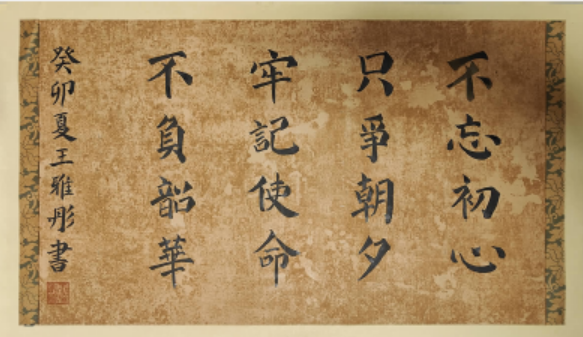 不忘初心
只爭朝夕
牢記使命
不負韶華
癸卯夏王雅彤書